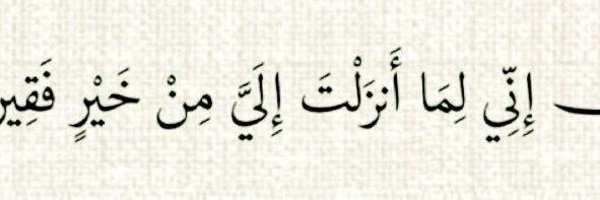 إِنِّي لِمَا أَنزَلْتَ إِلَيَّ مِنْ خَيْرٍ فَقِير